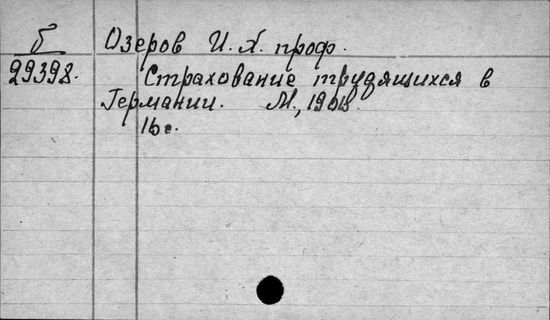 Б Озеров И. Х. проф.
29398. Страхование трудящихся в
Германии. М., 1903.
16 с.